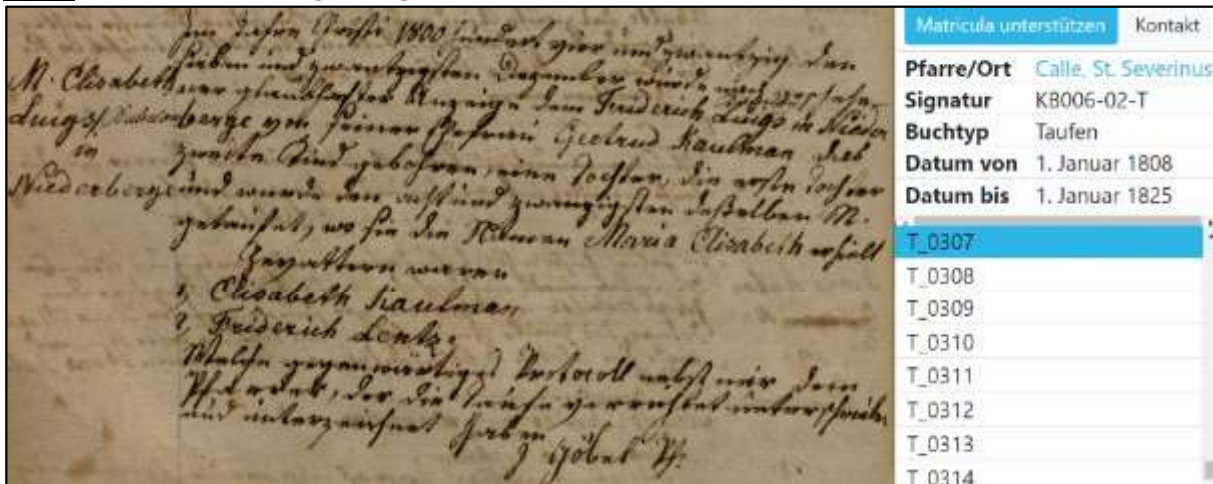 Im Jahre Christi 1800 hundert vier und zwanzig den
sieben und zwanzigsten Dezember wurde nach
ner glaubhafter Anzeige dem Friderich Luigs in Nieder
berge von seiner Ehefrau Gertrud Kaulman das
zweite Kind gebohren, eine Tochter, die erste Tochter
und wurde den acht und zwanzigsten desselben M.
getauft, wo sie die Namen Maria Elisabeth erhielt
Gevattern waren
1, Elisabeth Kaulman
2, Friderich Lentz.
Welche gegenwärtiges Protocoll nebst mir dem
Pfarrer, der die Taufe verrichtet unterschrieben
und unterzeichnet haben
Göbel Pf.
M. Elisabeth
Luigs
in
Niederberge
Matricula unterstützen Kontakt
Pfarre/Ort Calle, St. Severinus
Signatur KB006-02-T
Buchtyp Taufen
Datum von 1. Januar 1808
Datum bis 1. Januar 1825
T_0307
T_0308
T_0309
T_0310
T_0311
T_0312
T_0313
T_0314